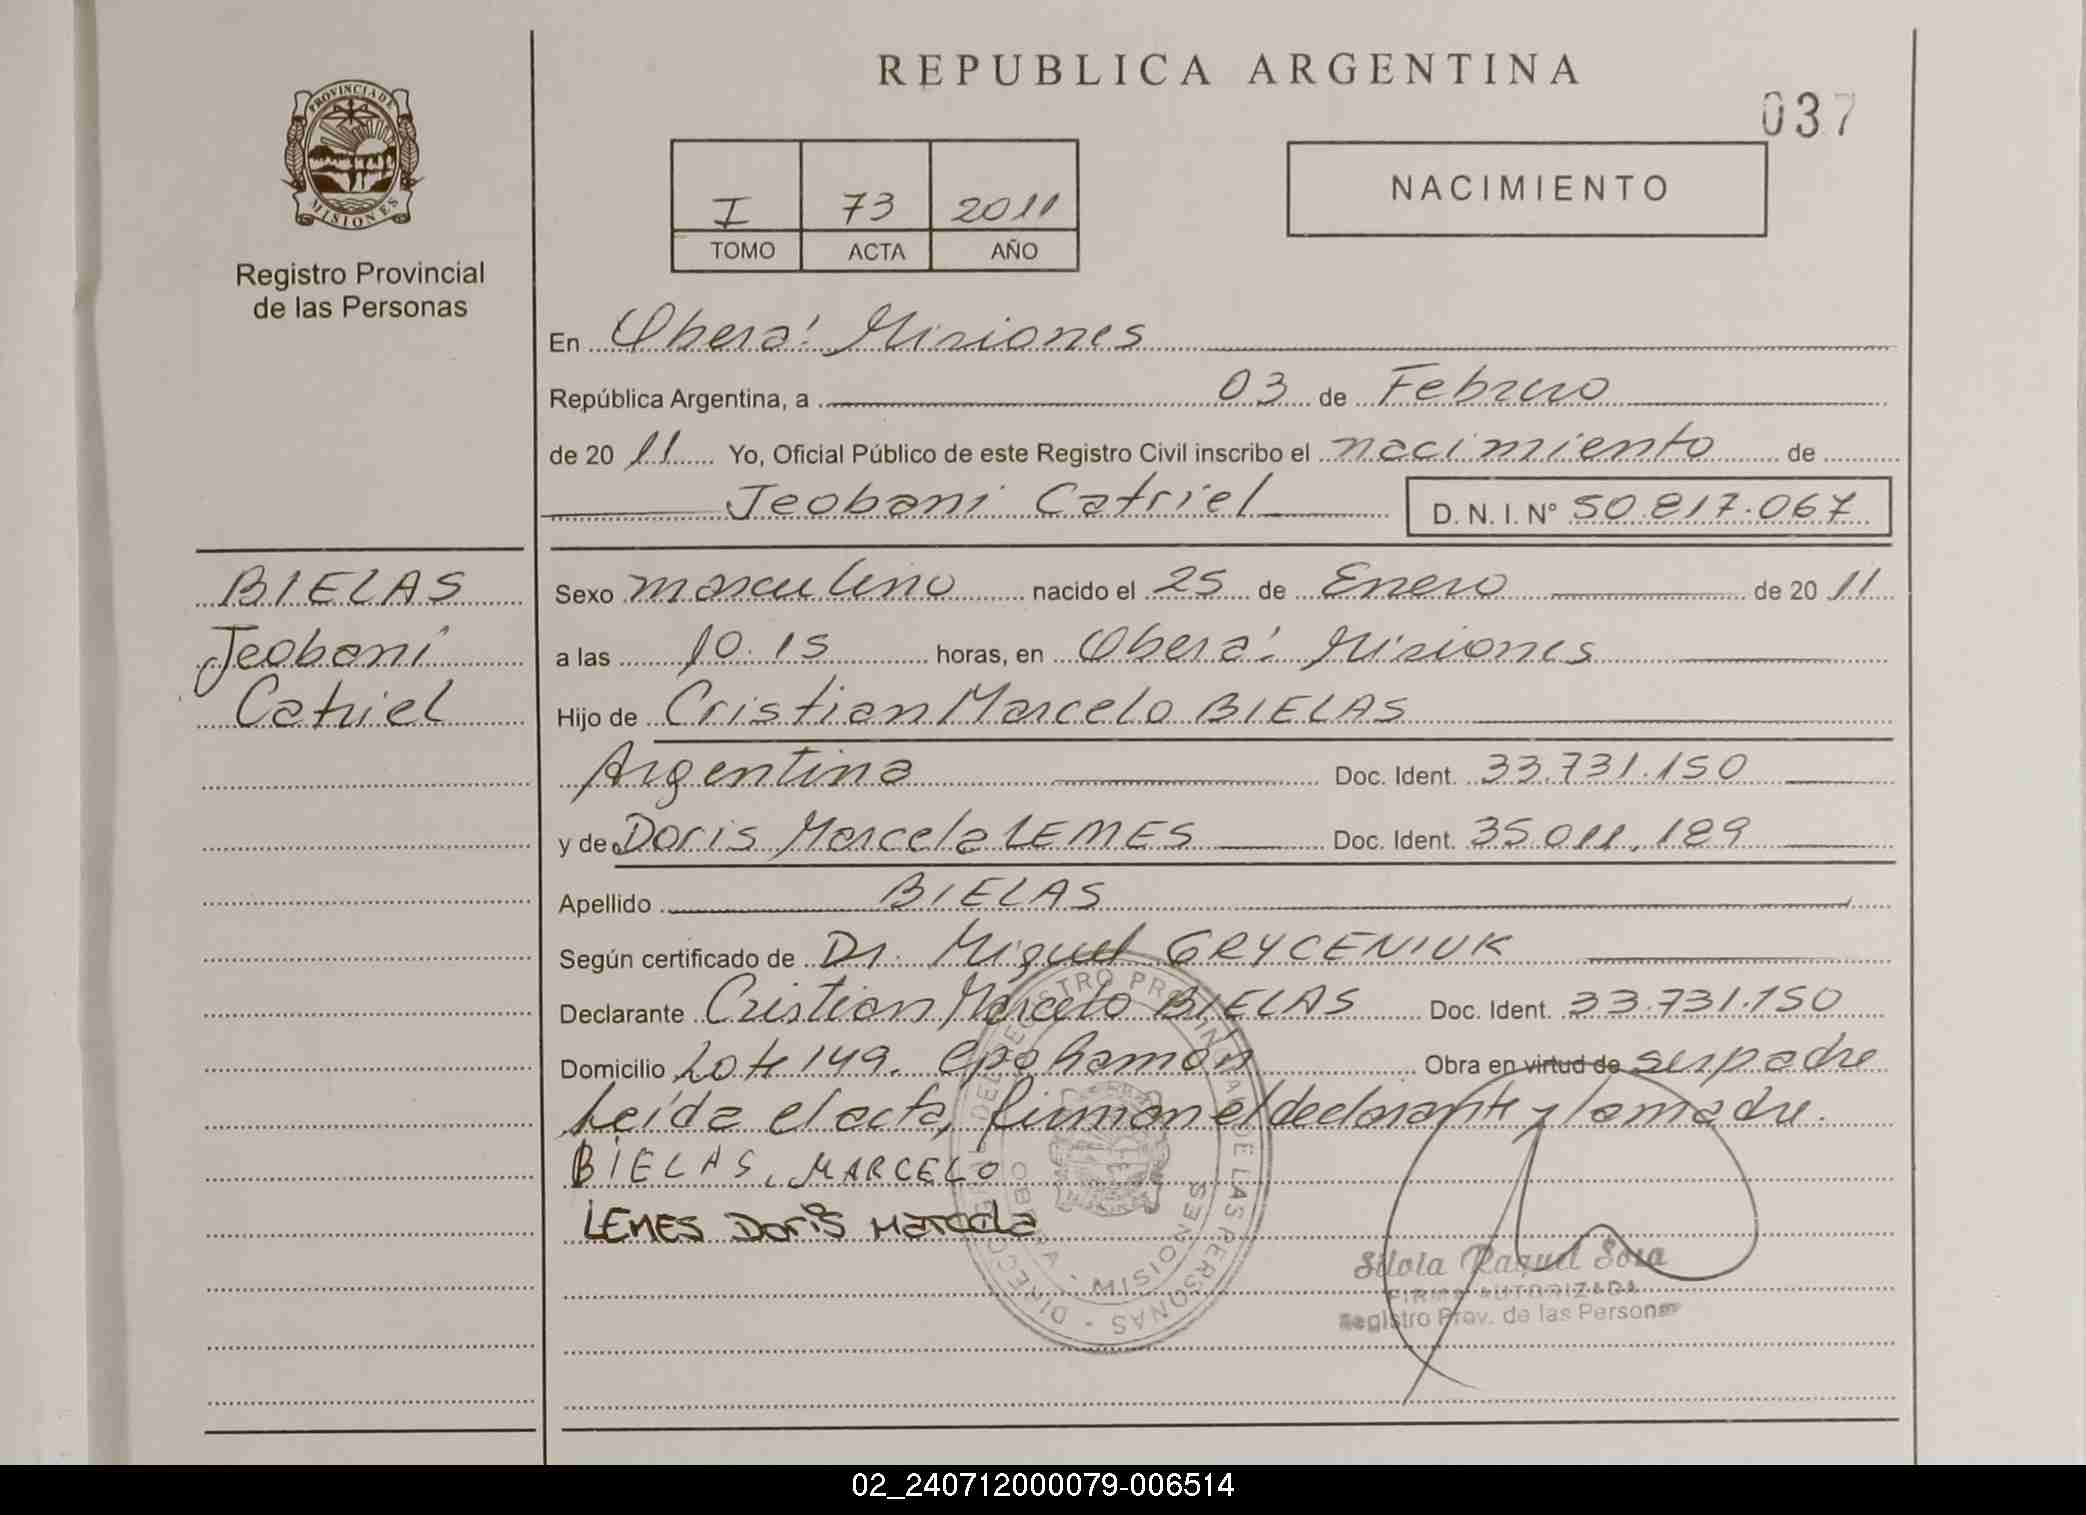 REPUBLICA ARGENTINA
037
PROVINCIA DE MISIONES
Registro Provincial
de las Personas
I 73 2011
TOMO ACTA AÑO
NACIMIENTO
En Oberá Misiones
República Argentina, a 03 de Febrero
de 2011 Yo, Oficial Público de este Registro Civil inscribo el nacimiento de
Jeobani Catriel D. N. I. N° 50.817.067
BIELAS
Jeobani
Catriel
Sexo masculino nacido el 25 de Enero de 2011
a las 10.15 horas, en Oberá Misiones
Hijo de Cristian Marcelo BIELAS
Argentina Doc. Ident. 33.731.150
y de Doris Marcela LEMES Doc. Ident. 35.011.189
Apellido BIELAS
Según certificado de Dr. Miguel GRYCENIUK
Declarante Cristian Marcelo BIELAS Doc. Ident. 33.731.150
Domicilio Lote 149. Cpo Ramón Obra en virtud de ser padre
Leída el acta, firman el declarante y la madre.
BIELAS, MARCELO
LEMES Doris Marcela
DIRECC GRAL DEL REGISTRO PROVINCIAL DE LAS PERSONAS
OBERA - MISIONES
Raquel Sosa
FIRMA AUTORIZADA
Registro Prov. de las Personas
02_240712000079-006514